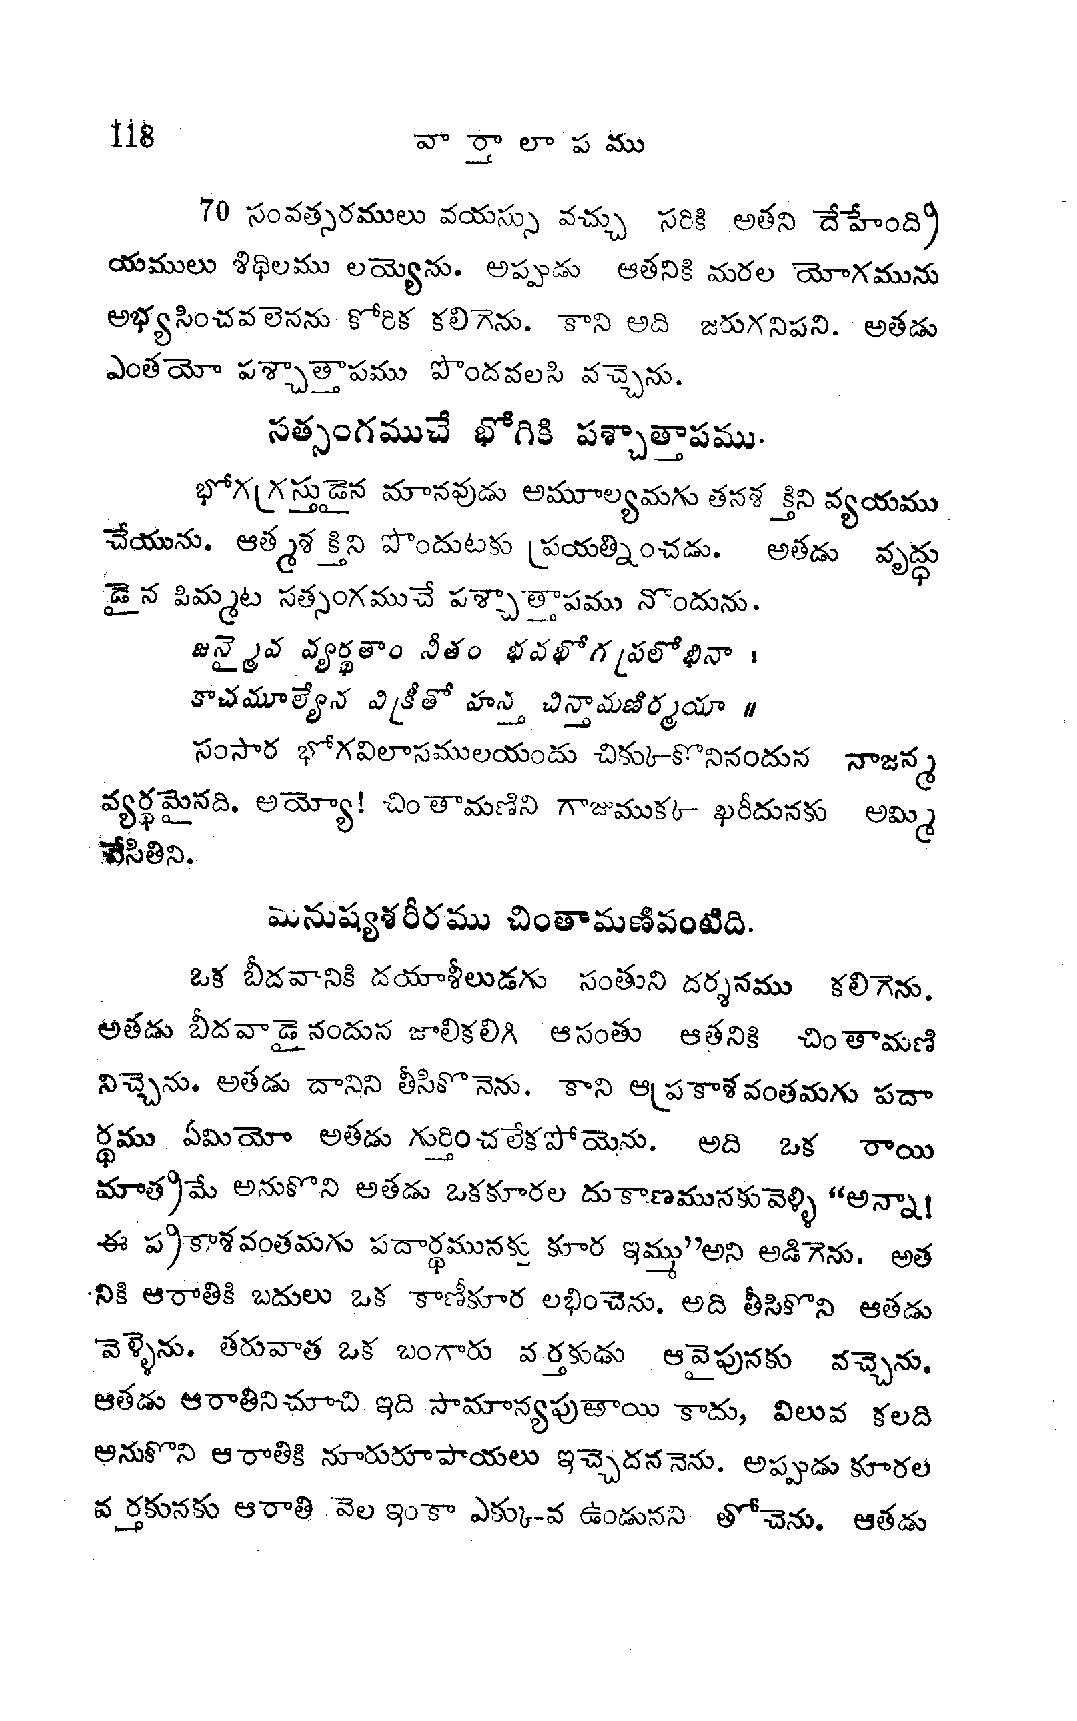 118 వార్తాలాపము
70 సంవత్సరములు వయస్సు వచ్చు సరికి అతని దేహేంద్రి
యములు శిథిలము లయ్యెను. అప్పుడు ఆతనికి మరల యోగమును
అభ్యసించవలెనను కోరిక కలిగెను. కాని అది జరుగనిపని. అతడు
ఎంతయో పశ్చాత్తాపము పొందవలసి వచ్చెను.
సత్సంగముచే భోగికి పశ్చాత్తాపము.
భోగగ్రస్తుడైన మానవుడు అమూల్యమగు తనశక్తిని వ్యయము
చేయును. ఆత్మశక్తిని పొందుటకు ప్రయత్నించడు. అతడు వృద్ధు
డైన పిమ్మట సత్సంగముచే పశ్చాత్తాపము నొందును.
జన్మైవ వ్యర్థతాం నీతం భవభోగప్రలోభినా ।
కాచమూల్యేన విక్రీతో హన్త చిన్తామణిర్మయా ॥
సంసార భోగవిలాసములయందు చికుక్కొనినందున నాజన్మ
వ్యర్థమైనది. అయ్యో! చింతామణిని గాజుముకక్క ఖరీదునకు అమ్మి
వేసితిని.
మనుష్యశరీరము చింతామణివంటిది.
ఒక బీదవానికి దయాశీలుడగు సంతుని దర్శనము కలిగెను.
అతడు బీదవాడైనందున జాలికలిగి ఆసంతు ఆతనికి చింతామణి
నిచ్చెను. అతడు దానిని తీసికొనెను. కాని ఆప్రకాశవంతమగు పదా
ర్థము ఏమియో అతడు గుర్తించలేకపోయెను. అది ఒక రాయి
మాత్రమే అనుకొని అతడు ఒకకూరల దుకాణమునకువెళ్ళి “అన్నా!
ఈ ప్రకాశవంతమగు పదార్థమునకు కూర ఇమ్ము”అని అడిగెను. అత
నికి ఆరాతికి బదులు ఒక కాణీకూర లభించెను. అది తీసికొని ఆతడు
వెళ్ళెను. తరువాత ఒక బంగారు వర్తకుడు ఆవైపునకు వచ్చెను.
ఆతడు ఆరాతినిచూచి ఇది సామాన్యపురాయి కాదు, విలువ కలది
అనుకొని ఆరాతికి నూరురూపాయలు ఇచ్చెదననెను. అప్పుడు కూరల
వర్తకునకు ఆరాతి వెల ఇంకా ఎక్కువ ఉండునని తోచెను. ఆతడు